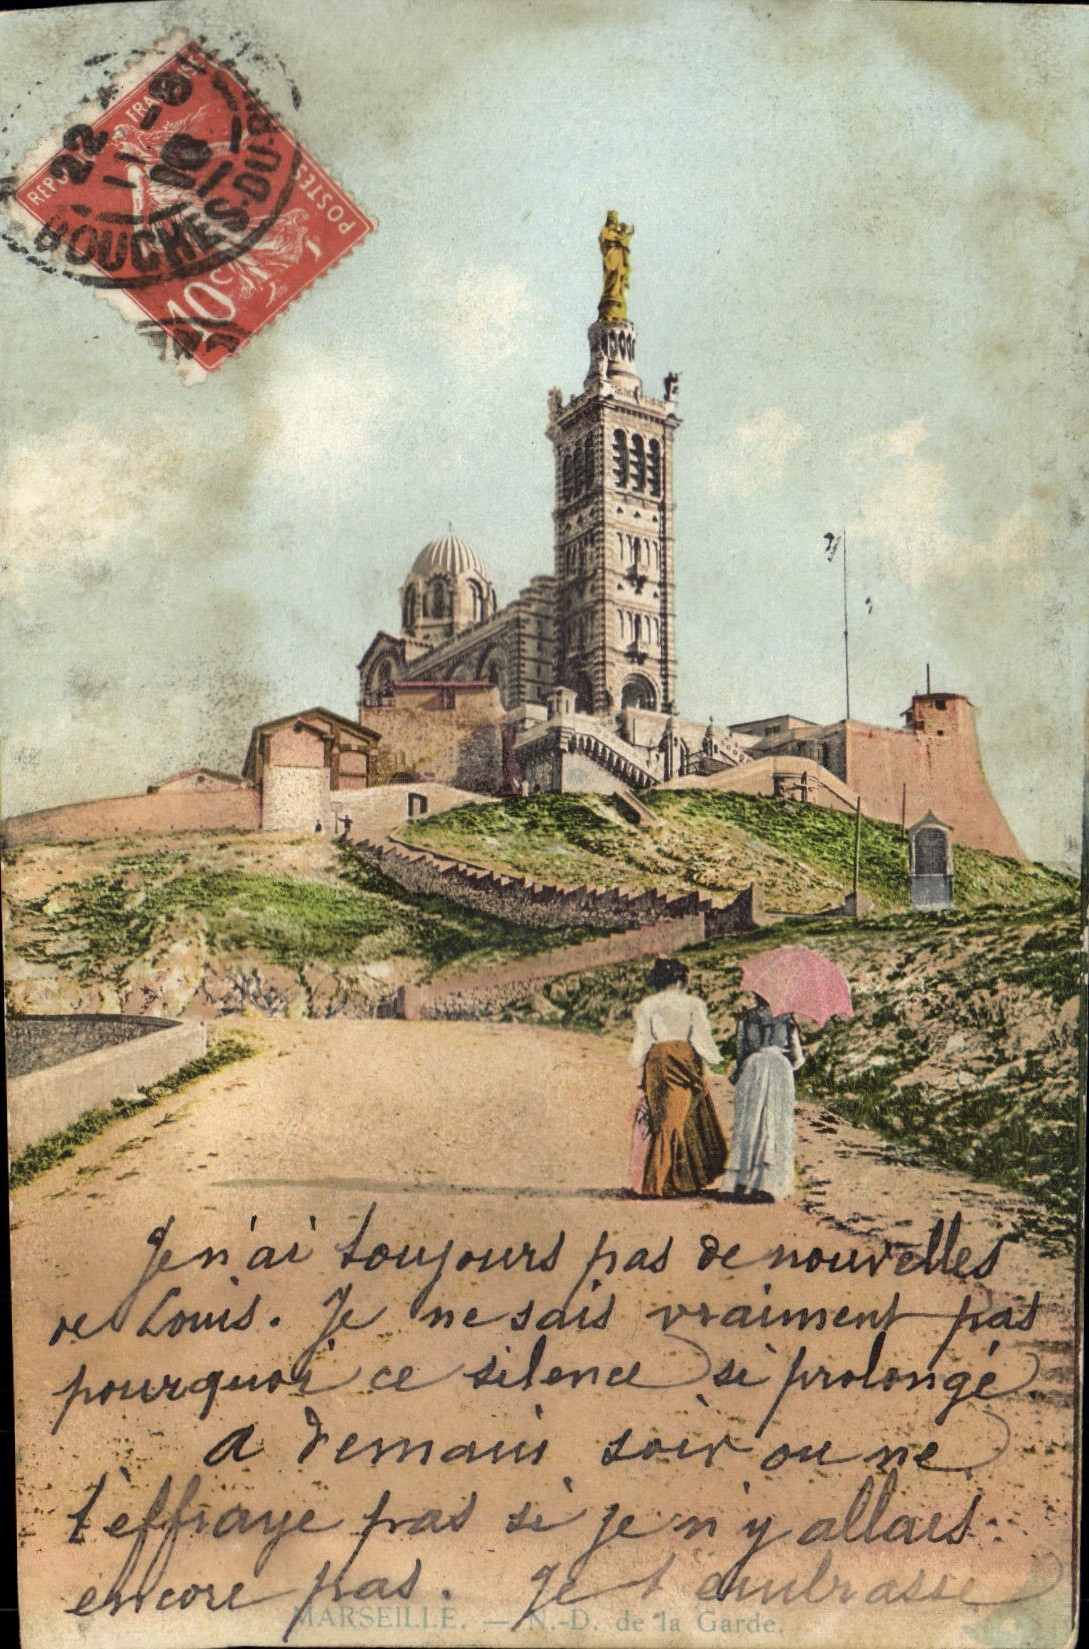 REPU FRANÇAISE
POSTES
10c
22
BOUCHES-DU-R
Je n'ai toujours pas de nouvelles
de Louis. Je ne sais vraiment pas
pourquoi ce silence si prolongé.
A demain soir ou ne
t'effraye pas si je n'y allais
encore pas. Je t'embrasse
MARSEILLE. — N.-D. de la Garde.